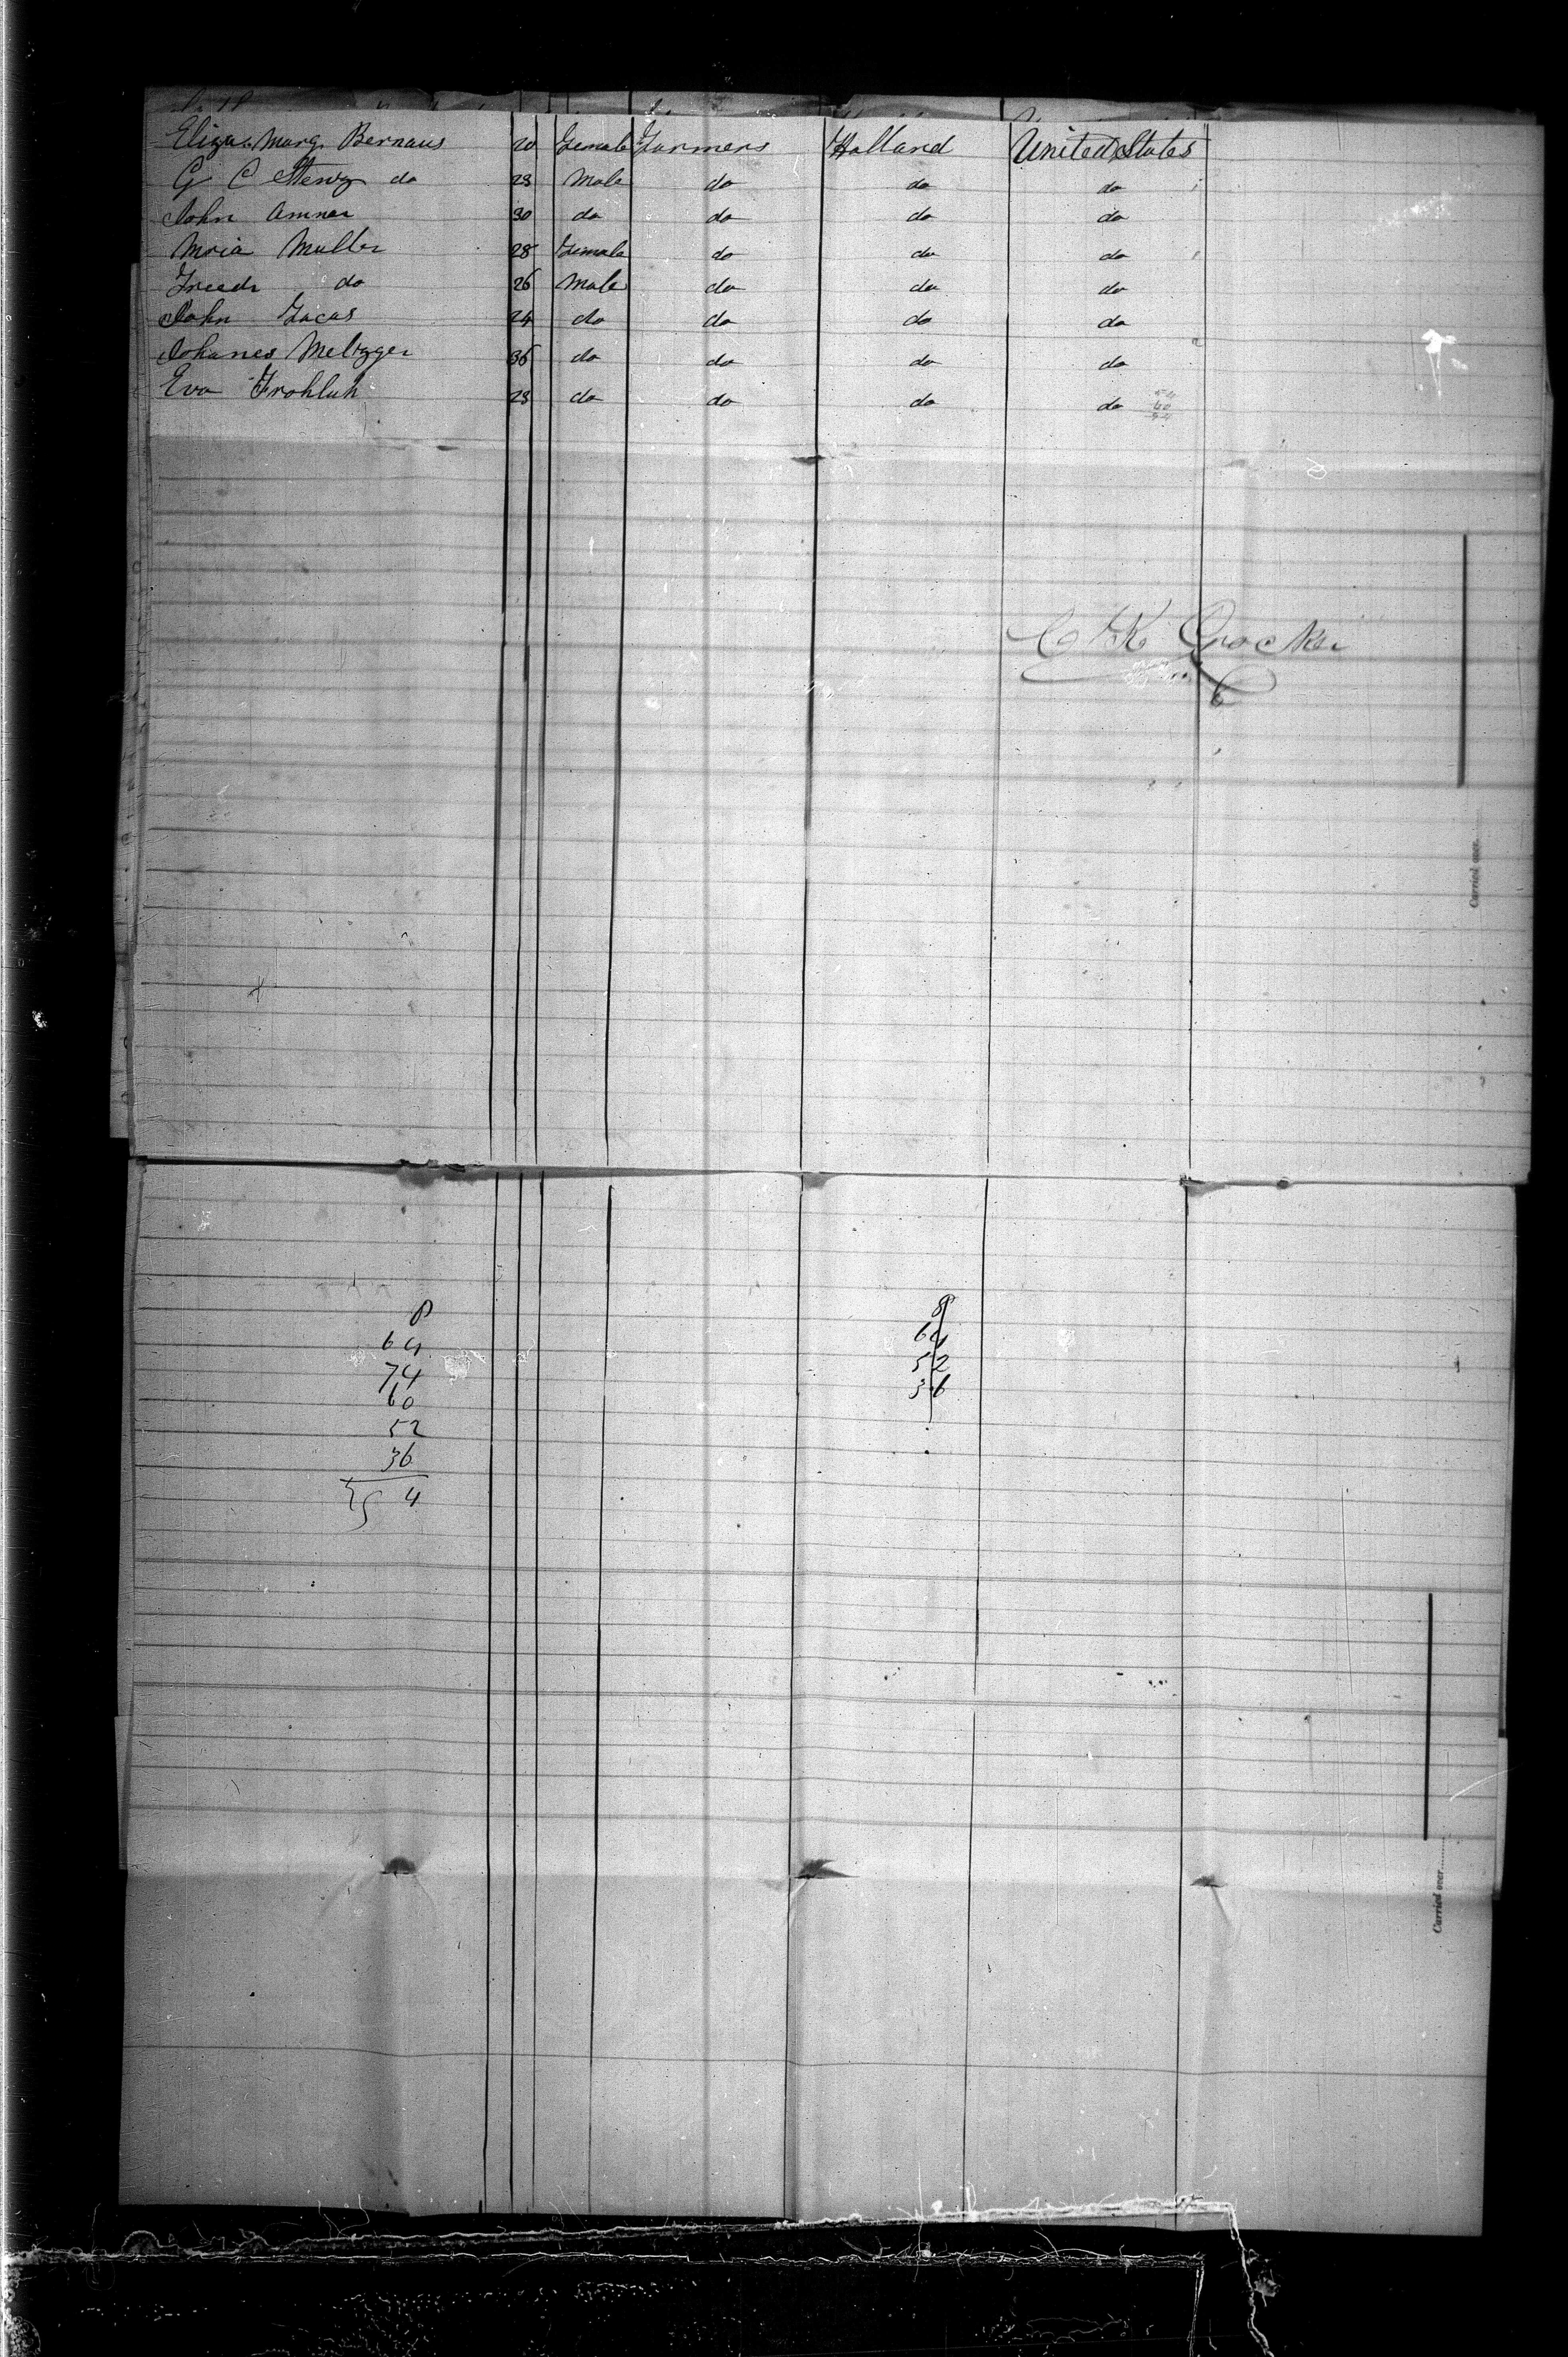 Eliza. Marg. Bernaus 20 Female Farmers Holland United States
G C Stewz do 23 Male do do do
John Amner 30 do do do do
Maria Muller 28 Female do do do
Freedr do 26 Male do do do
John Lacas 24 do do do do
Johanes Meltzger 36 do do do do
Eva Frohluh 23 do do do do
Crocker
Carried over
8 8
64 64
74 52
60 36
52
36
4
Carried over